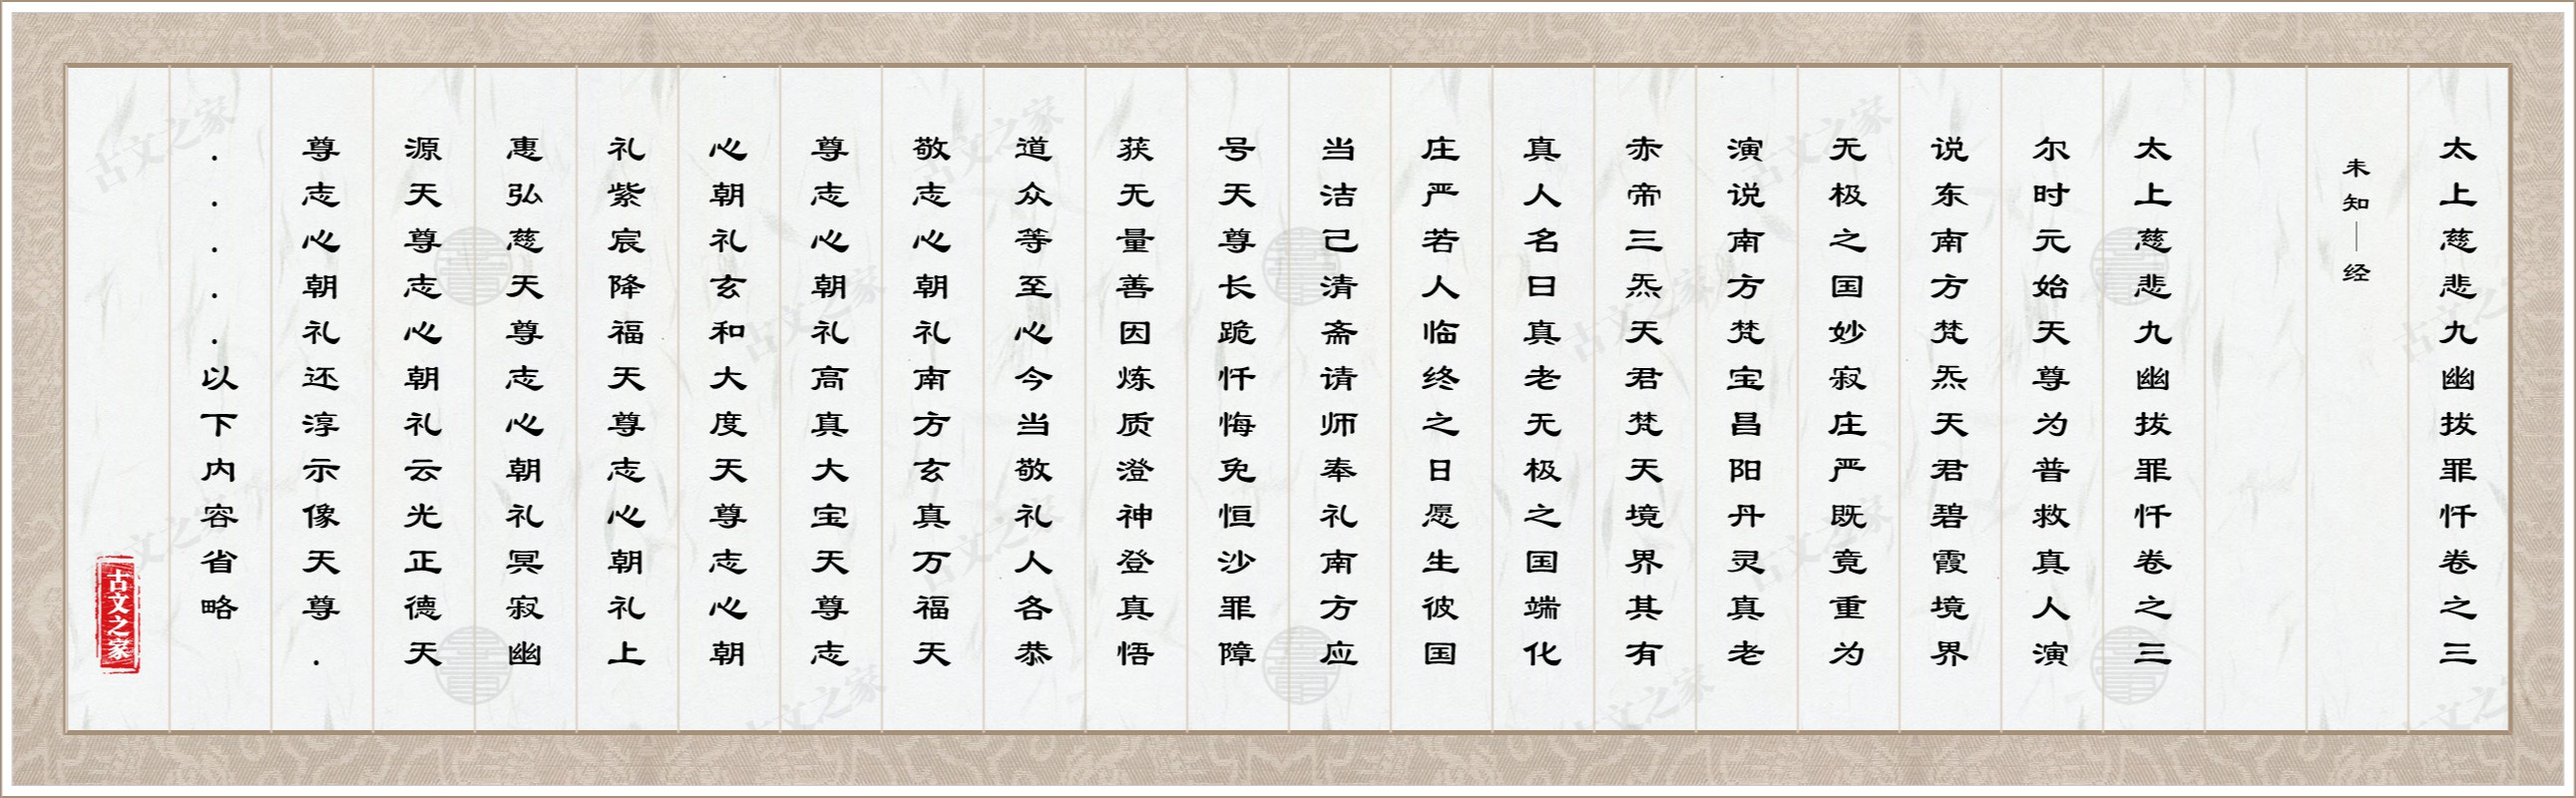 太上慈悲九幽拔罪忏卷之三
未知｜经
太上慈悲九幽拔罪忏卷之三
尔时元始天尊为普救真人演
说东南方梵炁天君碧霞境界
无极之国妙寂庄严既竟重为
演说南方梵宝昌阳丹灵真老
赤帝三炁天君梵天境界其有
真人名曰真老无极之国端化
庄严若人临终之日愿生彼国
当洁己清斋请师奉礼南方应
号天尊长跪忏悔免恒沙罪障
获无量善因炼质澄神登真悟
道众等至心今当敬礼人各恭
敬志心朝礼南方玄真万福天
尊志心朝礼高真大宝天尊志
心朝礼玄和大度天尊志心朝
礼紫宸降福天尊志心朝礼上
惠弘慈天尊志心朝礼冥寂幽
源天尊志心朝礼云光正德天
尊志心朝礼还淳示像天尊.
.....以下内容省略
古文之家